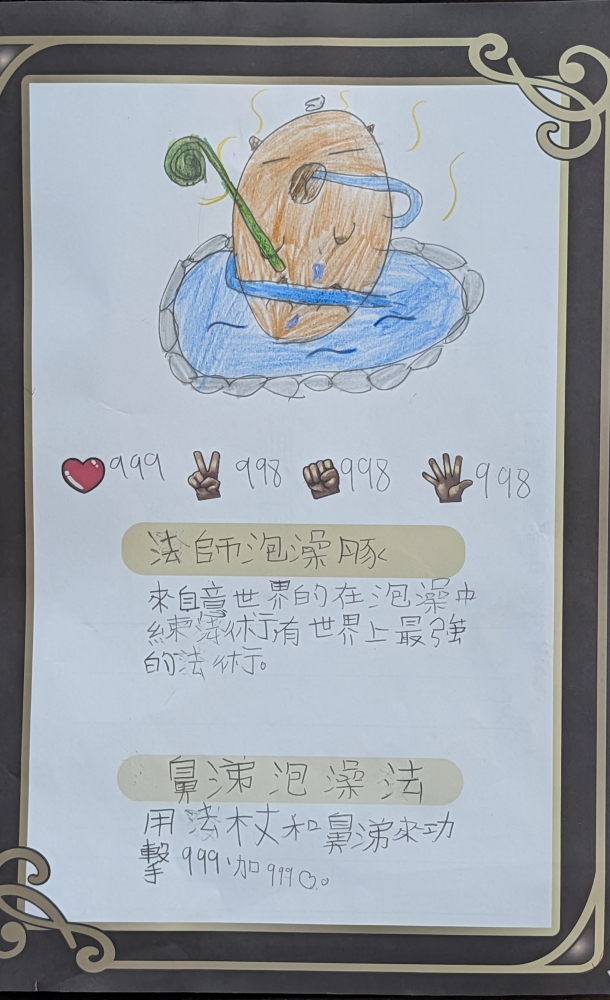 999 998 998 998
法師泡澡豚
來自意世界的在泡澡中
練法術有世界上最強
的法術。
鼻涕泡澡法
用法杖和鼻涕來功
擊999,加999♡。